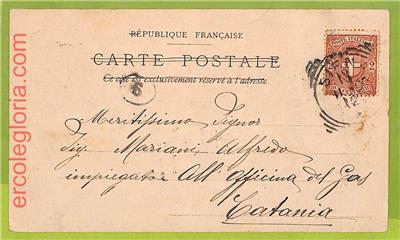 RÉPUBLIQUE FRANÇAISE
CARTE POSTALE
Ce côté est exclusivement réservé à l'adresse.
Meritissimo Signor
Sig. Mariani Alfredo
impiegato All' Officina del Gas
Catania
ercolegloria.com